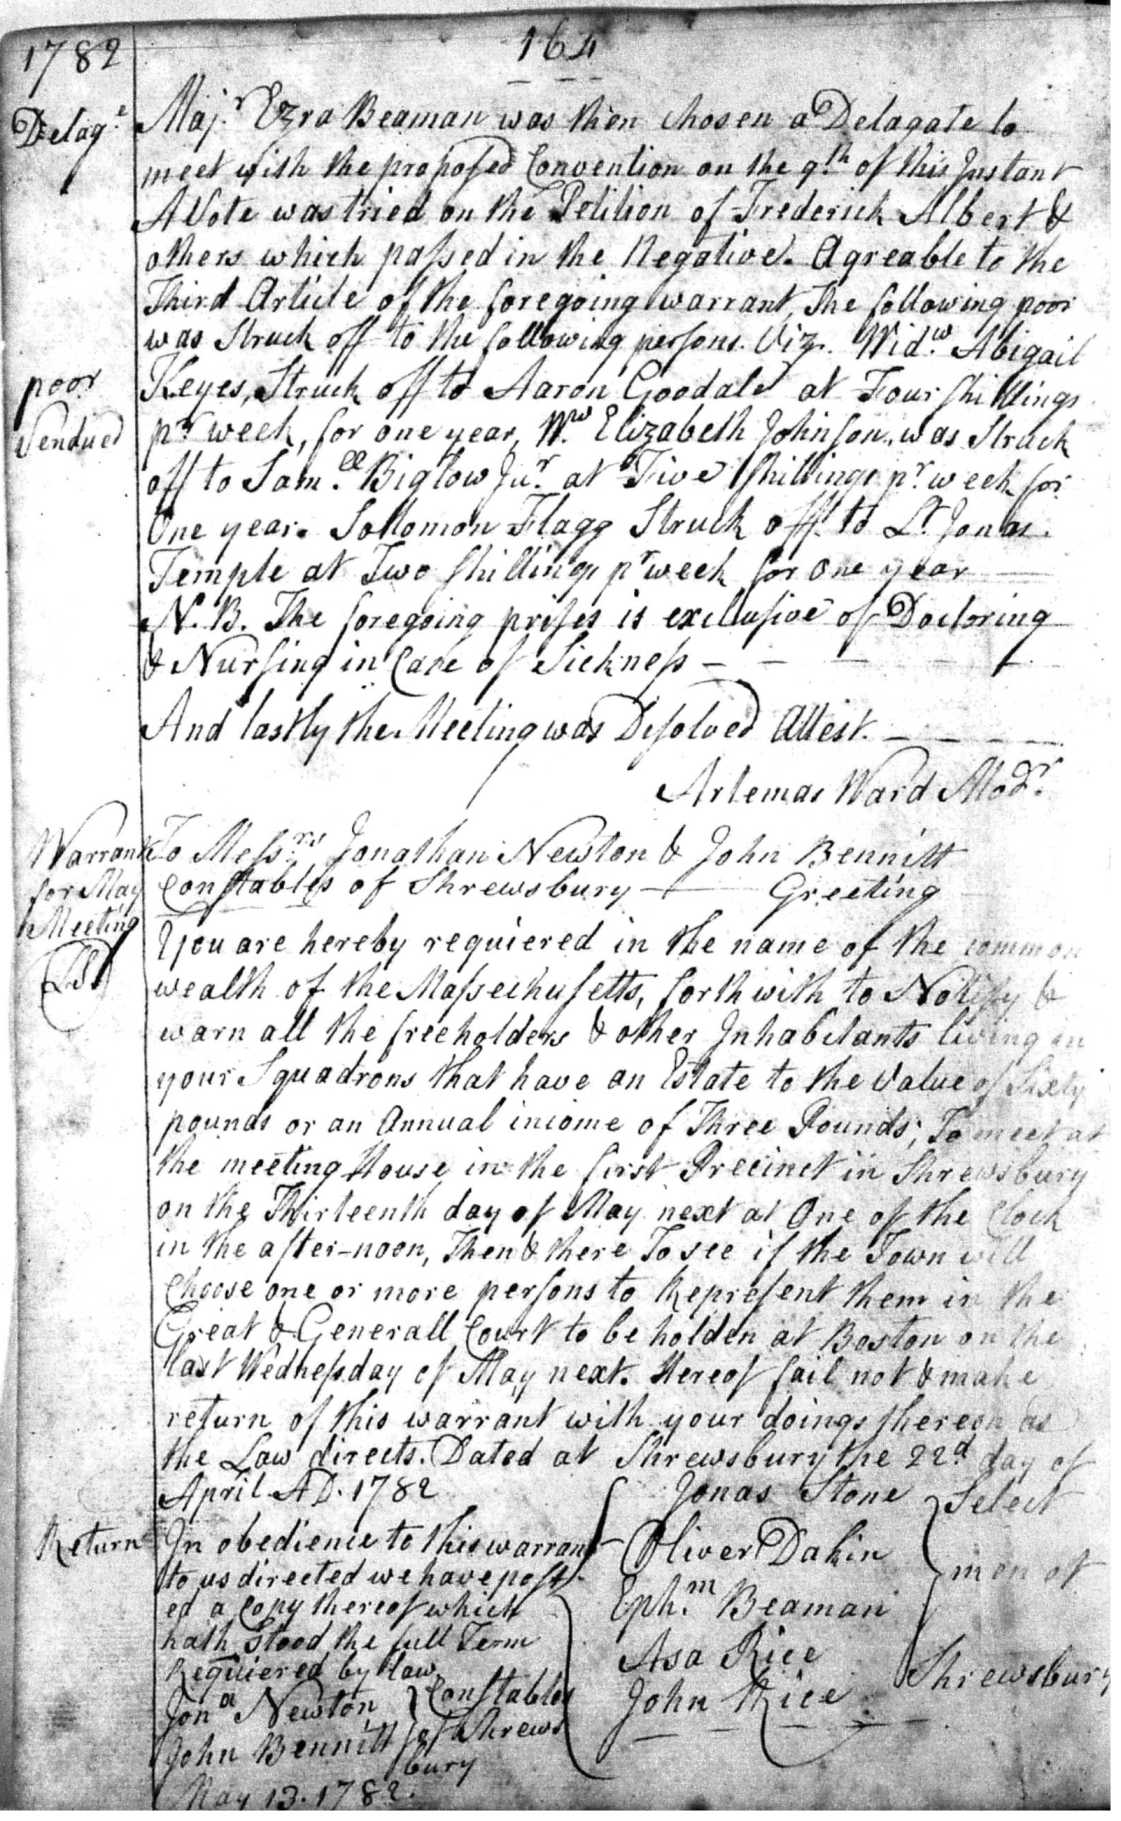 1782
164
Delagt
Majr. Ezra Beaman was then chosen a Delagate to
meet with the proposed Convention on the 9th. of this Instant
A Vote was tried on the Petition of Frederick Albert &
others which passed in the Negative. Agreable to the
Third Article of the foregoing warrant, The following poor
was Struck off to the following persons. Viz. Widw. Abigail
poor
Vendued
Keyes, Struck off to Aaron Goodale at Four shillings
pr week, for one year, Ww. Elizabeth Johnson, was Struck
off to Samll. Biglow Jur. at Five shillings pr. week for
One year. Sollomon Flagg Struck off to Lt. Jonas
Temple at Two shillings pr week for One year
N.B. The foregoing prises is exclusive of Doctoring
& Nursing in Case of Sickness
And lastly the Meeting was Disolved Attest.
Artemas Ward Modr.
Warrant
for May
Meeting
LS
To Messrs. Jonathan Newton & John Bennitt
Constables of Shrewsbury Greeting
You are hereby requiered in the name of the common
wealth of the Massechusetts, forthwith to Notify &
warn all the freeholders & other Inhabitants living in
your Squadrons that have an Estate to the Value of Sixty
pounds or an Annual income of Three Pounds; To meet at
the meeting House in the first Precinct in Shrewsbury
on the Thirteenth day of May next at One of the Clock
in the after-noon, Then & there To see if the Town will
Choose one or more persons to Represent them in the
Great & Generall Court to be holden at Boston on the
last Wednessday of May next. Hereof fail not & make
return of this warrant with your doings thereon as
the Law directs. Dated at Shrewsbury the 22d day of
April AD. 1782
Jonas Stone
Oliver Dakin
Ephm. Beaman
Asa Rice
John Rice
Select
men of
Shrewsbury
Return
In obedience to this warrant
to us directed we have post
ed a Copy thereof which
hath Stood the full Term
Requiered by law
Jona Newton
John Bennitt
Constables
of Shrews
bury
May 13. 1782.